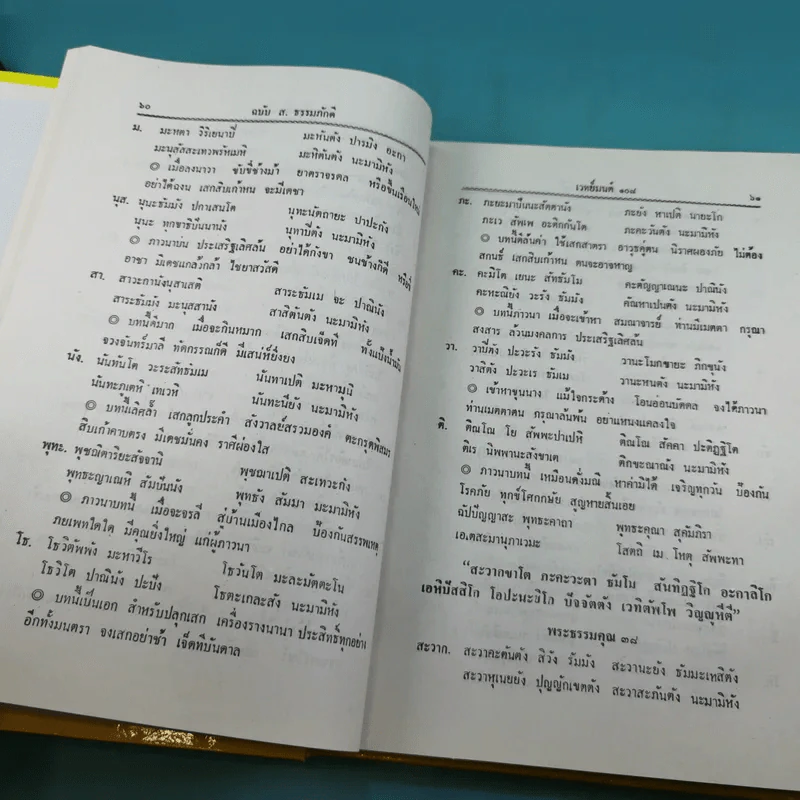 ๖๐ ฉบับ ส. ธรรมภักดี
ม. มะหตา วิริเยนาปิ มะหันตัง ปารมิง อะกา
มะนุสัสสะเทวพรัหมหิ มะหิตันตัง นะมามิหัง
◎ เมื่อลงนาวา ขับขี่ช้างม้า ยาตราจรดล หรือขึ้นเรือนใหม่
อย่าได้ฉงน เสกสิบเก้าหน จะมีเดชา
นุส. นุนะธัมมัง ปกาเสนโต นุทะนัตถายะ ปาปะกัง
นุนะ ทุกขาธิปันนานัง นุทาปีตัง นะมามิหัง
◎ ภาวนาบ่น ประเสริฐเลิศล้น อย่าได้กังขา ชนช้างก็ดี หรือขี่
อาชา มีเดชแกล้วกล้า ไชยาสวัสดี
สา. สาวะกานังนุสาเสติ สาระธัมเม จะ ปาณินัง
สาระธัมมัง มะนุสสานัง สาสิตันตัง นะมามิหัง
◎ บทนี้ดีมาก เมื่อจะกินหมาก เสกสิบเจ็ดที ทั้งแป้งน้ำมัน
จวงจันทร์มาลี ทัดกรรณก็ดี มีเสน่ห์ยิ่งยง
นัง. นันทันโต วะระสัทธัมเม นันทาเปติ มะหามุนิ
นันทะภูเตหิ เทเวหิ นันทะนียัง นะมามิหัง
◎ บทนี้เลิศล้ำ เสกลูกประคำ สังวาลย์สรวมองค์ ตะกรุดพิสมร
สิบเก้าคาบตรง มีเดชมั่นคง ราศีผ่องใส
พุทธะ. พุชฌิตาริยะสัจจานิ พุชฌาเปติ สะเทวะกัง
พุทธะญาเณหิ สัมปันนัง พุทธัง สัมมา นะมามิหัง
◎ ภาวนาบทนี้ เมื่อจะจรลี สู่บ้านเมืองไกล ป้องกันสรรพเหตุ
ภยเพทใดใด มีคุณยิ่งใหญ่ แก่ผู้ภาวนา
โธ. โธวิตัพพัง มะหาวีโร โธวันโต มะละมัตตะโน
โธวิโต ปาณินัง ปะปัง โธตะเกละสัง นะมามิหัง
◎ บทนี้เป็นเอก สำหรับปลุกเสก เครื่องรางนานา ประสิทธิ์ทุกอย่าง
อีกทั้งมนตรา จงเสกอย่าช้า เจ็ดทีบันดาล
เวทย์มนต์ ๑๐๘ ๖๑
ภะ. ภะยะมาปันนะสัตตานัง ภะยัง หาเปติ นายะโก
ภะเว สัพเพ อะติกกันโต ภะคะวันตัง นะมามิหัง
◎ บทนี้ล้นค่า ใช้เสกสาตรา อาวุธคู่ตน นิราศผองภัย ไม่ต้อง
สกนธ์ เสกสิบเก้าหน ตนจะอาจหาญ
คะ. คะมิโต เยนะ สัทธัมโม คะตัญญาเณนะ ปาณินัง
คะหะณียัง วะรัง ธัมมัง คัณหาเปนตัง นะมามิหัง
◎ บทนี้ภาวนา เมื่อจะเข้าหา สมณาจารย์ ท่านมีเมตตา กรุณา
สงสาร ล้วนมงคลการ ประเสริฐเลิศลน
วา. วาปีตัง ปะวะรัง ธัมมัง วานะโมกขายะ ภิกขุนัง
วาสิตัง ปะวะเร ธัมเม วานะหนตัง นะมามิหัง
◎ เข้าหาขุนนาง แม้ใจกระด้าง โอนอ่อนบัดดล จงได้ภาวนา
ท่านเมตตาตน กรุณาล้นพ้น อย่าแหนงแคลงใจ
ติ. ติณโณ โย สัพพะปาเปหิ ติณโณ สัคคา ปะติฏฐิโต
ติเร นิพพานะสังขาเต ติกขะณาณัง นะมามิหัง
◎ ภาวนาบทนี้ เหมือนดั่งมณี หาค่ามิได้ เจริญทุกวัน ป้องกัน
โรคภัย ทุกข์โศกกษัย สูญหายสิ้นเอย
ฉัปปัญญาสะ พุทธะคาถา พุทธะคุณา สุคัมภิรา
เอ.ตสะมานุภาเวมะ โสตถิ เม โหตุ สัพพะทา
“สะวากขาโต ภะคะวะตา ธัมโม สันทิฏฐิโก อะกาลิโก
เอหิปัสสิโก โอปะนะยิโก ปัจจัตตัง เวทิตัพโพ วิญญูหีติ”
พระธรรมคุณ ๓๘
สะวาก. สะวาคะตันตัง สิวัง รัมมัง สะวานะยัง ธัมมะเทสิตัง
สะวาหุเนยยัง ปุญญักเขตตัง สะวาสะภันตัง นะมามิหัง